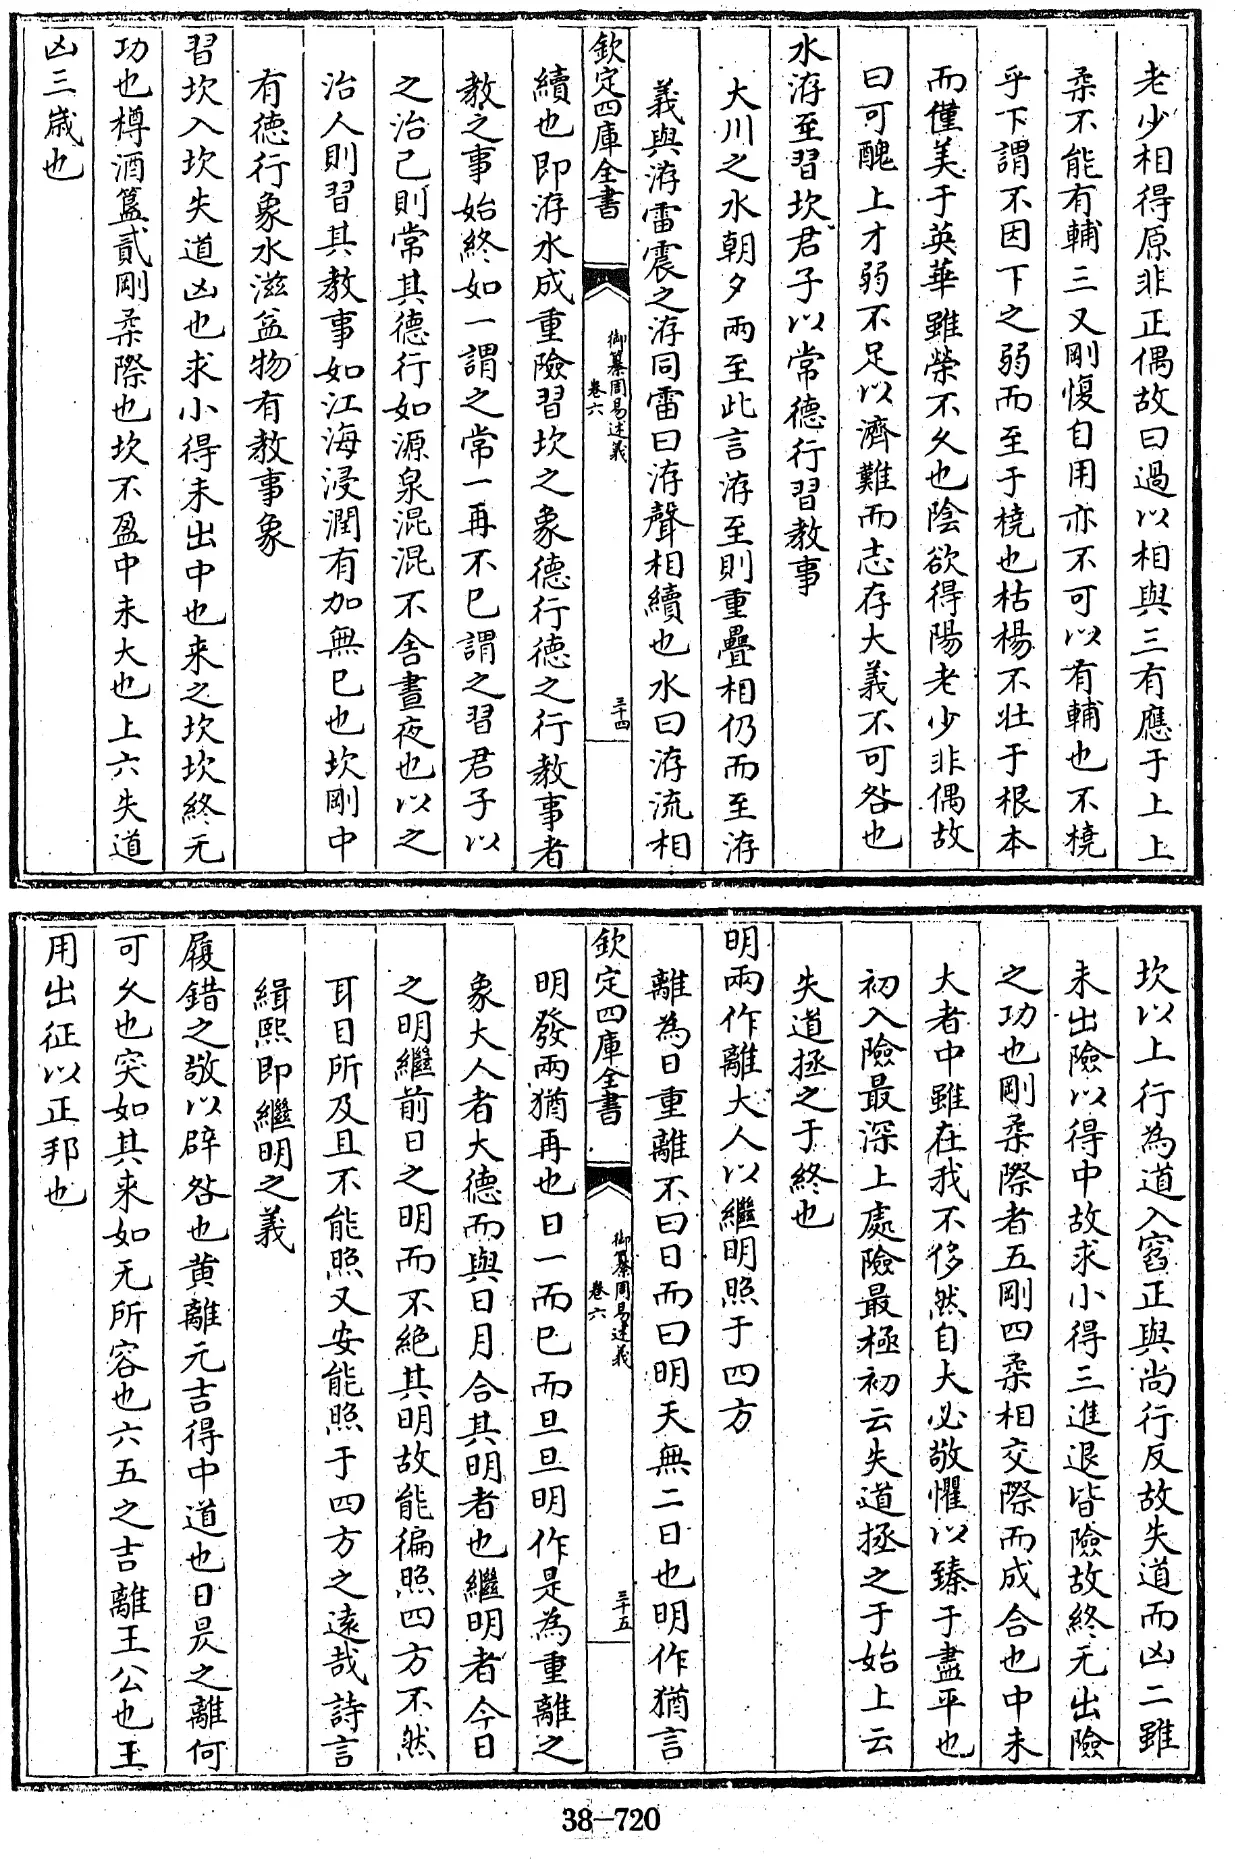 老少相得原非正偶故曰過以相與三有應于上上
柔不能有輔三又剛愎自用亦不可以有輔也不橈
乎下謂不因下之弱而至于橈也枯楊不壯于根本
而僅美于英華雖榮不久也陰欲得陽老少非偶故
曰可醜上才弱不足以濟難而志存大義不可咎也
水洊至習坎君子以常德行習教事
大川之水朝夕兩至此言洊至則重疊相仍而至洊
義與洊雷震之洊同雷曰洊聲相續也水曰洊流相
欽定四庫全書
御纂周易述義
卷六
三十四
續也即洊水成重險習坎之象德行德之行教事者
教之事始終如一謂之常一再不已謂之習君子以
之治己則常其德行如源泉混混不舍晝夜也以之
治人則習其教事如江海浸潤有加無已也坎剛中
有德行象水滋益物有教事象
習坎入坎失道凶也求小得未出中也来之坎坎終无
功也樽酒簋貳剛柔際也坎不盈中未大也上六失道
凶三歲也
坎以上行為道入窞正與尚行反故失道而凶二雖
未出險以得中故求小得三進退皆險故終无出險
之功也剛柔際者五剛四柔相交際而成合也中未
大者中雖在我不侈然自大必敬懼以臻于盡平也
初入險最深上處險最極初云失道拯之于始上云
失道拯之于終也
明兩作離大人以繼明照于四方
離為日重離不曰日而曰明天無二日也明作猶言
欽定四庫全書
御纂周易述義
卷六
三十五
明發兩猶再也日一而已而旦旦明作是為重離之
象大人者大德而與日月合其明者也繼明者今日
之明繼前日之明而不絶其明故能徧照四方不然
耳目所及且不能照又安能照于四方之遠哉詩言
緝熙即繼明之義
履錯之敬以辟咎也黄離元吉得中道也日昃之離何
可久也突如其来如无所容也六五之吉離王公也王
用出征以正邦也
38-720